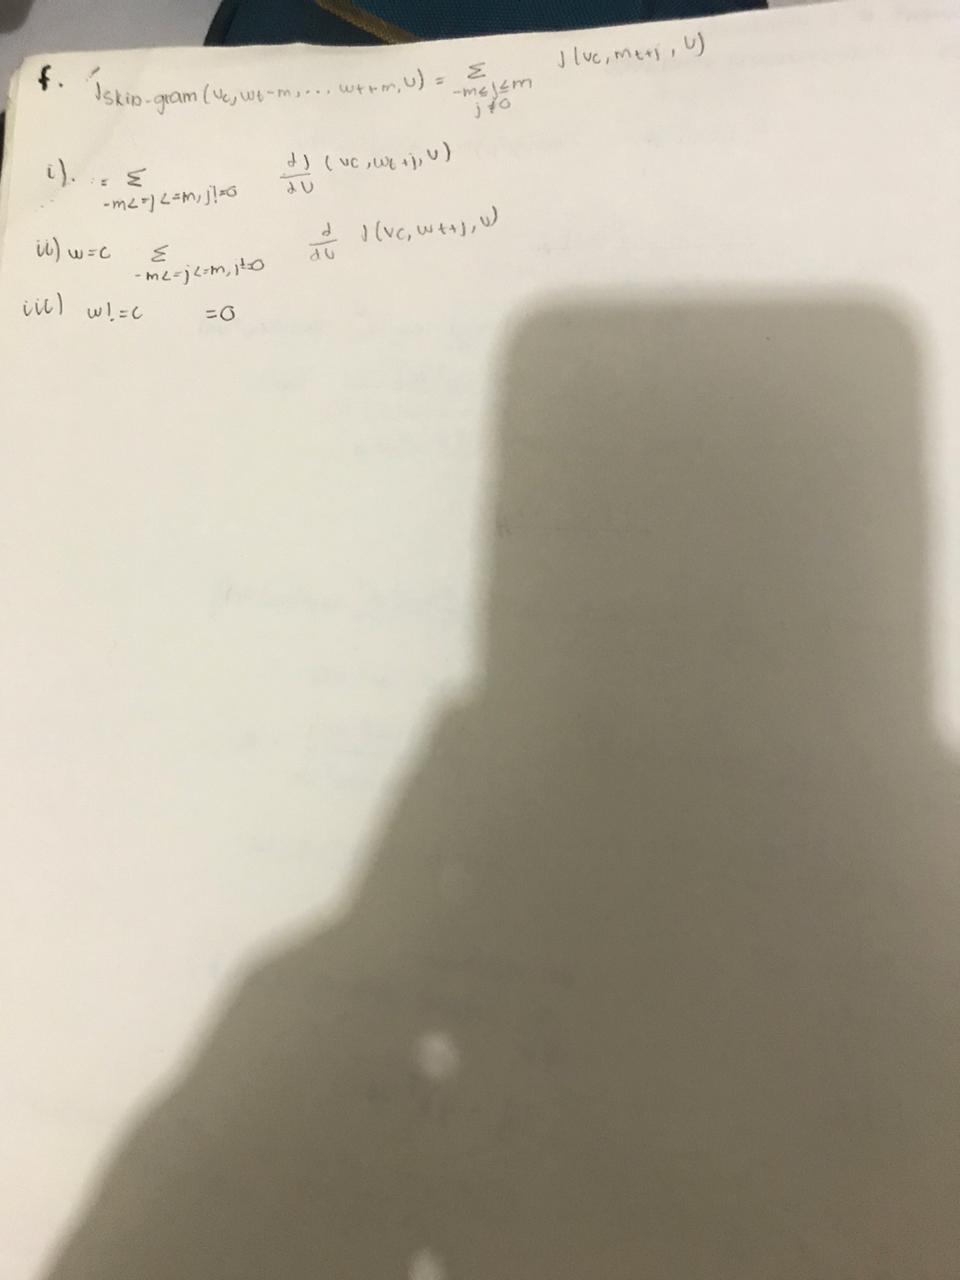 f. Jskip-gram (vc, wt-m, ... wt+m, U) = Σ -m≤j≤m j≠0 J(vc, mt+j, U)
i). = Σ -m<=j<=m, j!=0 dJ/dU (vc, wt+j, U)
ii) w=c Σ -m<=j<=m, j!=0 d/dU J(vc, wt+j, U)
iii) w!=c =0